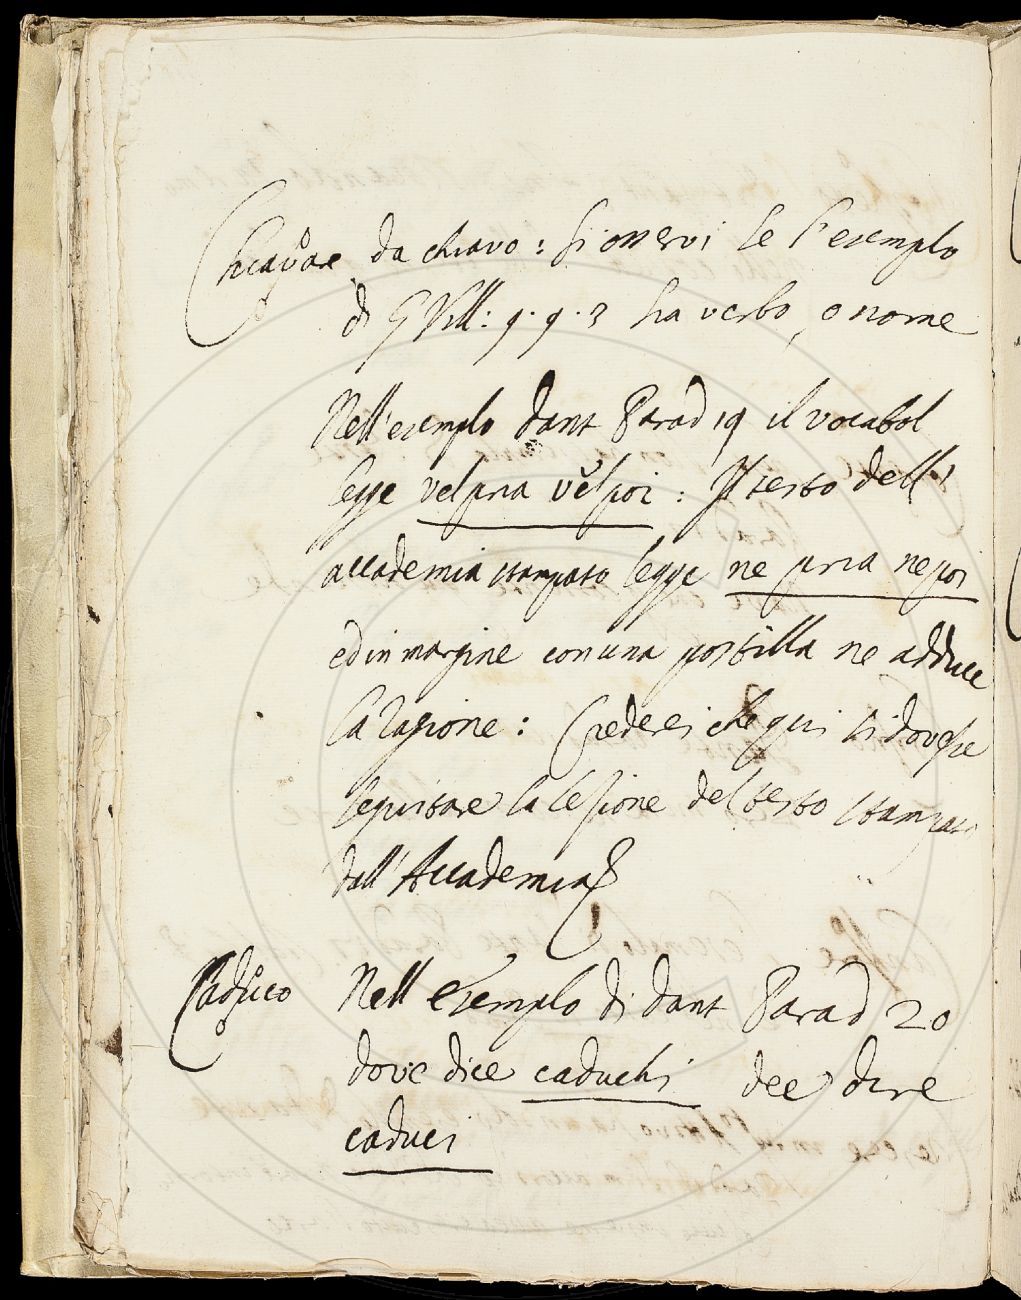 Chiavare da chiavo: si osservi se l'esemplo
di G Vill: 9. 9. 3 sia verbo, o nome
Nell'esemplo Dant Parad 19 il vocabol
legge vel pria vel poi: Il testo dell'
accademia stampato legge ne pria ne poi
ed in margine con una postilla ne adduce
la ragione: Crederei che qui si dovesse
seguitare la lezione del testo stampato
dall'Accademia
Caduco Nell esemplo di Dant Parad 20
dove dice caduchi dee dire
caduci